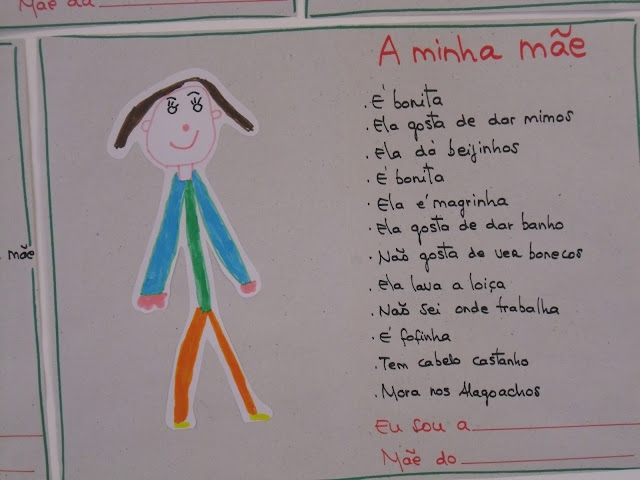 Mãe da
mãe
A minha mãe
. É bonita
. Ela gosta de dar mimos
. Ela dá beijinhos
. É bonita
. Ela é magrinha
. Ela gosta de dar banho
. Não gosta de ver bonecos
. Ela lava a loiça
. Não sei onde trabalha
. É fofinha
. Tem cabelo castanho
. Mora nos Alagoachos
Eu sou a
Mãe do